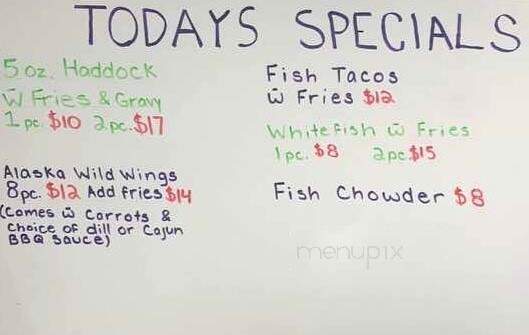 TODAYS SPECIALS
5 oz. Haddock
W̄ Fries & Gravy
1 pc. $10 2 pc. $17
Alaska Wild Wings
8pc. $12 Add fries $14
(Comes w̄ Carrots &
choice of dill or Cajun
BBQ Sauce)
Fish Tacos
w̄ Fries $12
Whitefish w̄ Fries
1 pc. $8 2 pc $15
Fish Chowder $8
menupix